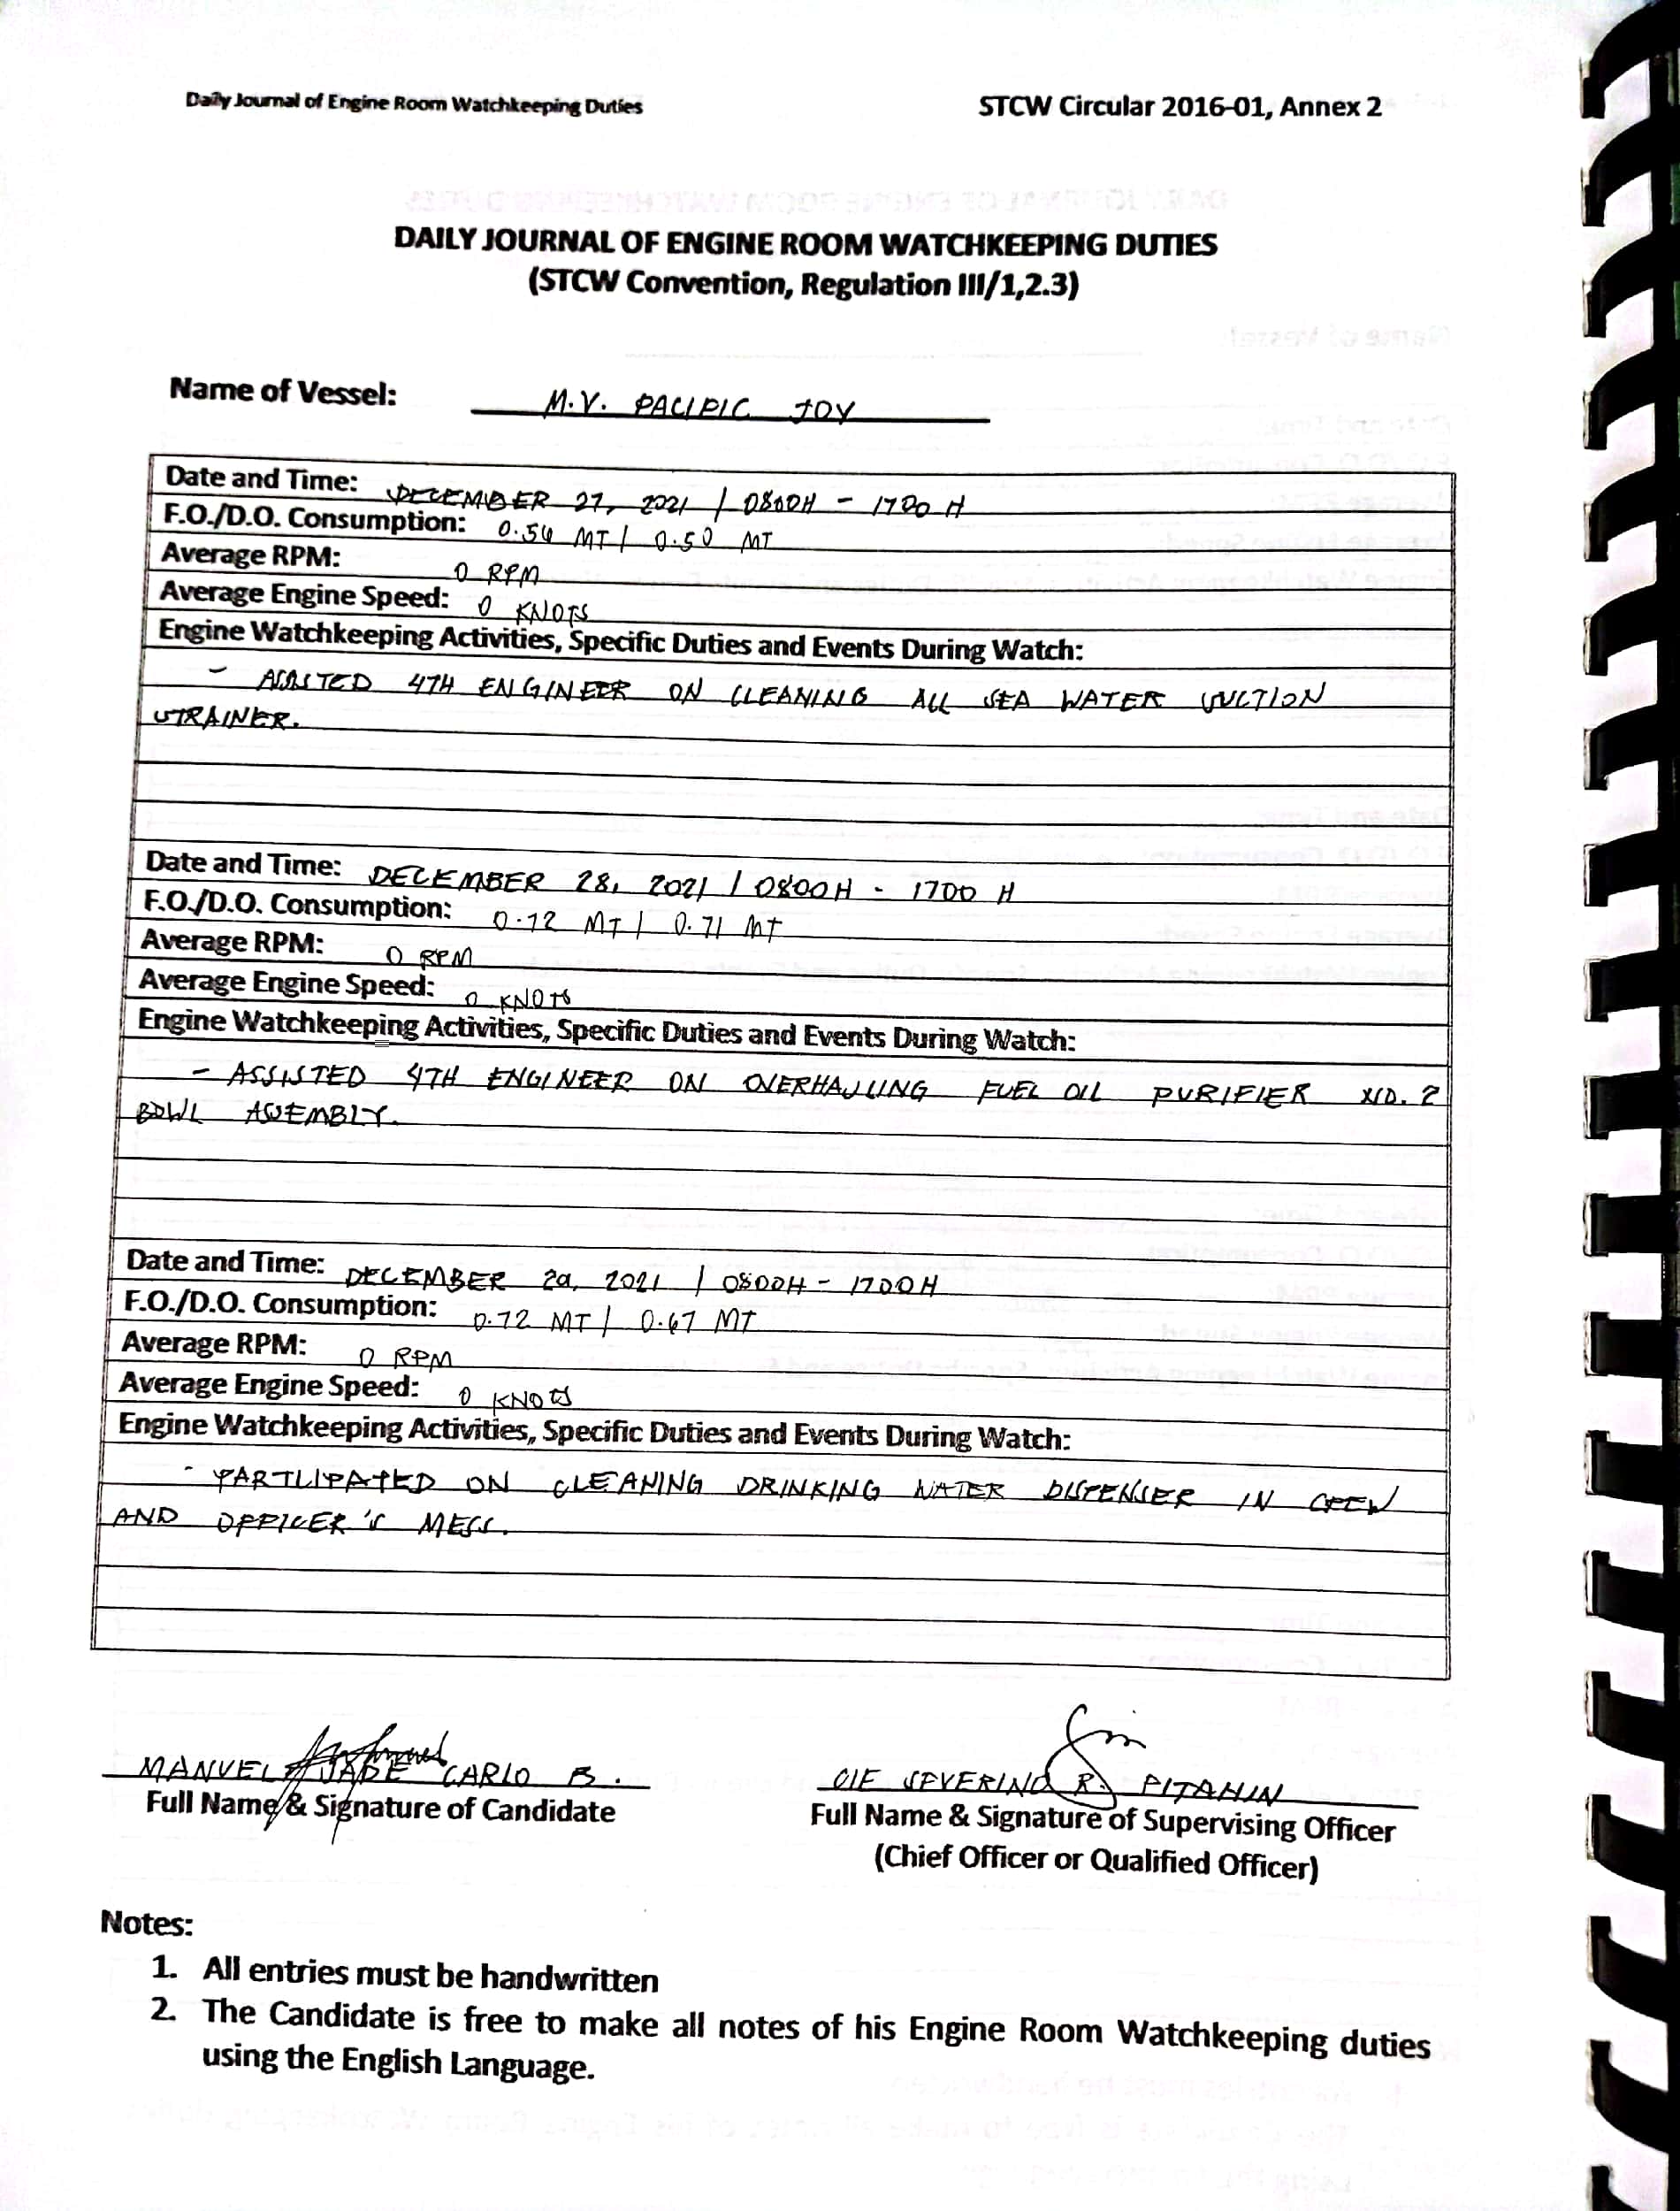 Daily Journal of Engine Room Watchkeeping Duties STCW Circular 2016-01, Annex 2
DAILY JOURNAL OF ENGINE ROOM WATCHKEEPING DUTIES
(STCW Convention, Regulation III/1,2.3)
Name of Vessel: M.V. PACIFIC JOY
Date and Time: DECEMBER 27, 2021 / 0800H - 1700 H
F.O./D.O. Consumption: 0.56 MT / 0.50 MT
Average RPM: 0 RPM
Average Engine Speed: 0 KNOTS
Engine Watchkeeping Activities, Specific Duties and Events During Watch:
- ASSISTED 4TH ENGINEER ON CLEANING ALL SEA WATER SUCTION
STRAINER.
Date and Time: DECEMBER 28, 2021 / 0800H - 1700 H
F.O./D.O. Consumption: 0.72 MT / 0.71 MT
Average RPM: 0 RPM
Average Engine Speed: 0 KNOTS
Engine Watchkeeping Activities, Specific Duties and Events During Watch:
- ASSISTED 4TH ENGINEER ON OVERHAULING FUEL OIL PURIFIER NO. 2
BOWL ASSEMBLY.
Date and Time: DECEMBER 29, 2021 / 0800H - 1700H
F.O./D.O. Consumption: 0.72 MT / 0.67 MT
Average RPM: 0 RPM
Average Engine Speed: 0 KNOTS
Engine Watchkeeping Activities, Specific Duties and Events During Watch:
- PARTICIPATED ON CLEANING DRINKING WATER DISPENSER IN CREW
AND OFFICER'S MESS.
MANUEL, JADE CARLO B. C/E SEVERINO R. PITAHIN
Full Name & Signature of Candidate Full Name & Signature of Supervising Officer
(Chief Officer or Qualified Officer)
Notes:
1. All entries must be handwritten
2. The Candidate is free to make all notes of his Engine Room Watchkeeping duties
using the English Language.